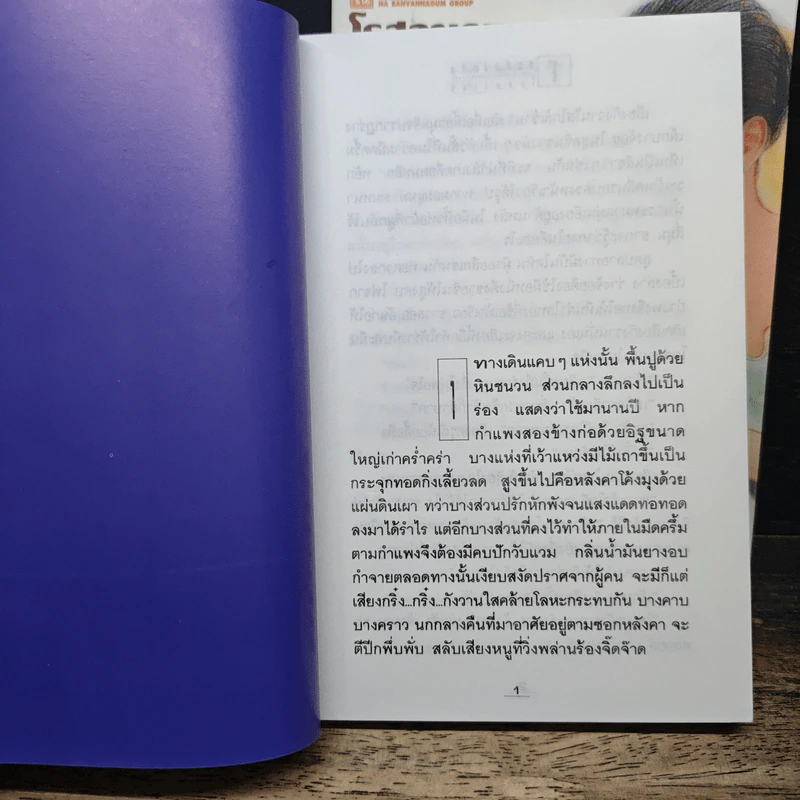 NA BANVANNAGUM GROUP
1
ทางเดินแคบ ๆ แห่งนั้น พื้นปูด้วย
หินชนวน ส่วนกลางลึกลงไปเป็น
ร่อง แสดงว่าใช้มานานปี หาก
กำแพงสองข้างก่อด้วยอิฐขนาด
ใหญ่เก่าคร่ำคร่า บางแห่งที่เว้าแหว่งมีไม้เถาขึ้นเป็น
กระจุกทอดกิ่งเลี้ยวลด สูงขึ้นไปคือหลังคาโค้งมุงด้วย
แผ่นดินเผา ทว่าบางส่วนปรักหักพังจนแสงแดดทอทอด
ลงมาได้รำไร แต่อีกบางส่วนที่คงไว้ทำให้ภายในมืดครึ้ม
ตามกำแพงจึงต้องมีคบปักวับแวม กลิ่นน้ำมันยางอบ
กำจายตลอดทางนั้นเงียบสงัดปราศจากผู้คน จะมีก็แต่
เสียงกริ๋ง...กริ๋ง...กังวานใสคล้ายโลหะกระทบกัน บางคาบ
บางคราว นกกลางคืนที่มาอาศัยอยู่ตามซอกหลังคา จะ
ตีปีกพึ่บพั่บ สลับเสียงหนูที่วิ่งพล่านร้องจิ๊ดจ๊าด
1